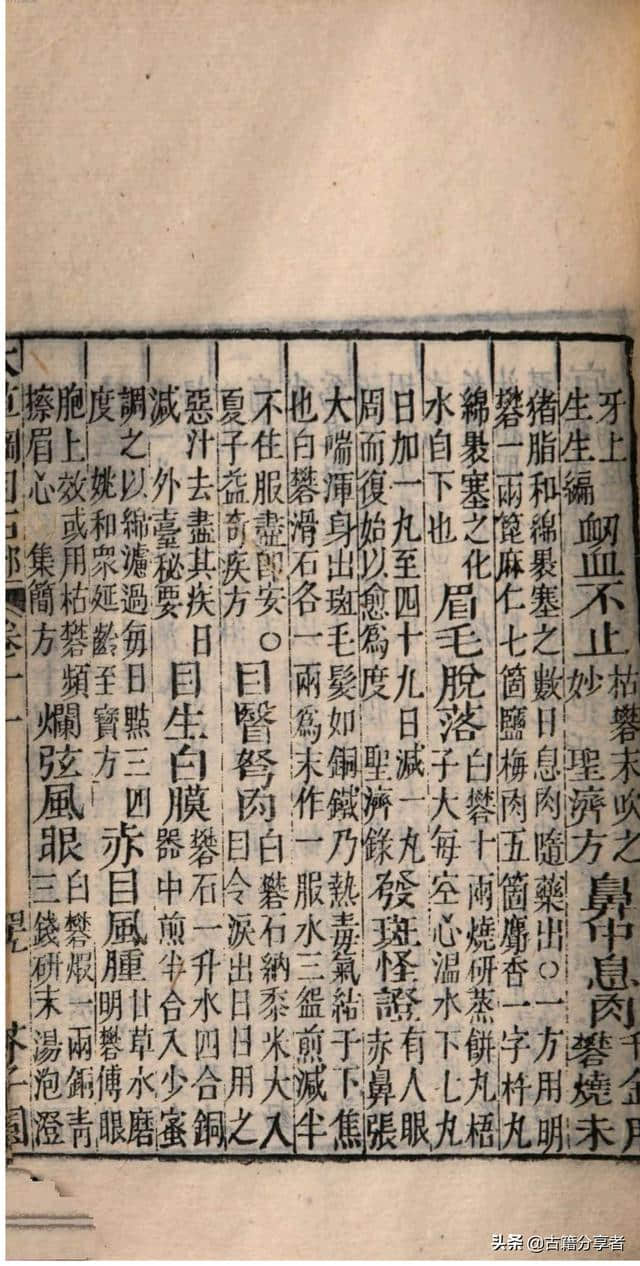 牙上
生生編
衂血不止
枯礬末吹之
妙　聖濟方
鼻中息肉
千金用
礬燒末
猪脂和綿裹塞之數日息肉隨藥出○一方用明
礬一兩箆麻仁七箇鹽梅肉五箇麝香一字杵丸
綿裹塞之化
水自下也
眉毛脫落
白礬十兩燒研蒸餅丸梧
子大每空心温水下七丸
日加一丸至四十九日減一丸
周而復始以愈為度　聖濟錄
發斑怪證
有人眼
赤鼻張
大喘渾身出斑毛髮如銅鐵乃熱毒氣結于下焦
也白礬滑石各一兩為末作一服水三盌煎減半
不住服盡即安○
夏子益奇疾方
目瞖胬肉
白礬石納黍米大入
目令淚出日日用之
惡汁去盡其疾日
減　外臺秘要
目生白膜
礬石一升水四合銅
器中煎半合入少蜜
調之以綿濾過每日點三四
度　姚和眾延齡至寶方
赤目風腫
甘草水磨
明礬傅眼
胞上效或用枯礬頻
擦眉心　集簡方
爛弦風眼
白礬煅一兩銅青
三錢研末湯泡澄
本草綱目石部 卷十一 芥子園
头条 @古籍分享者